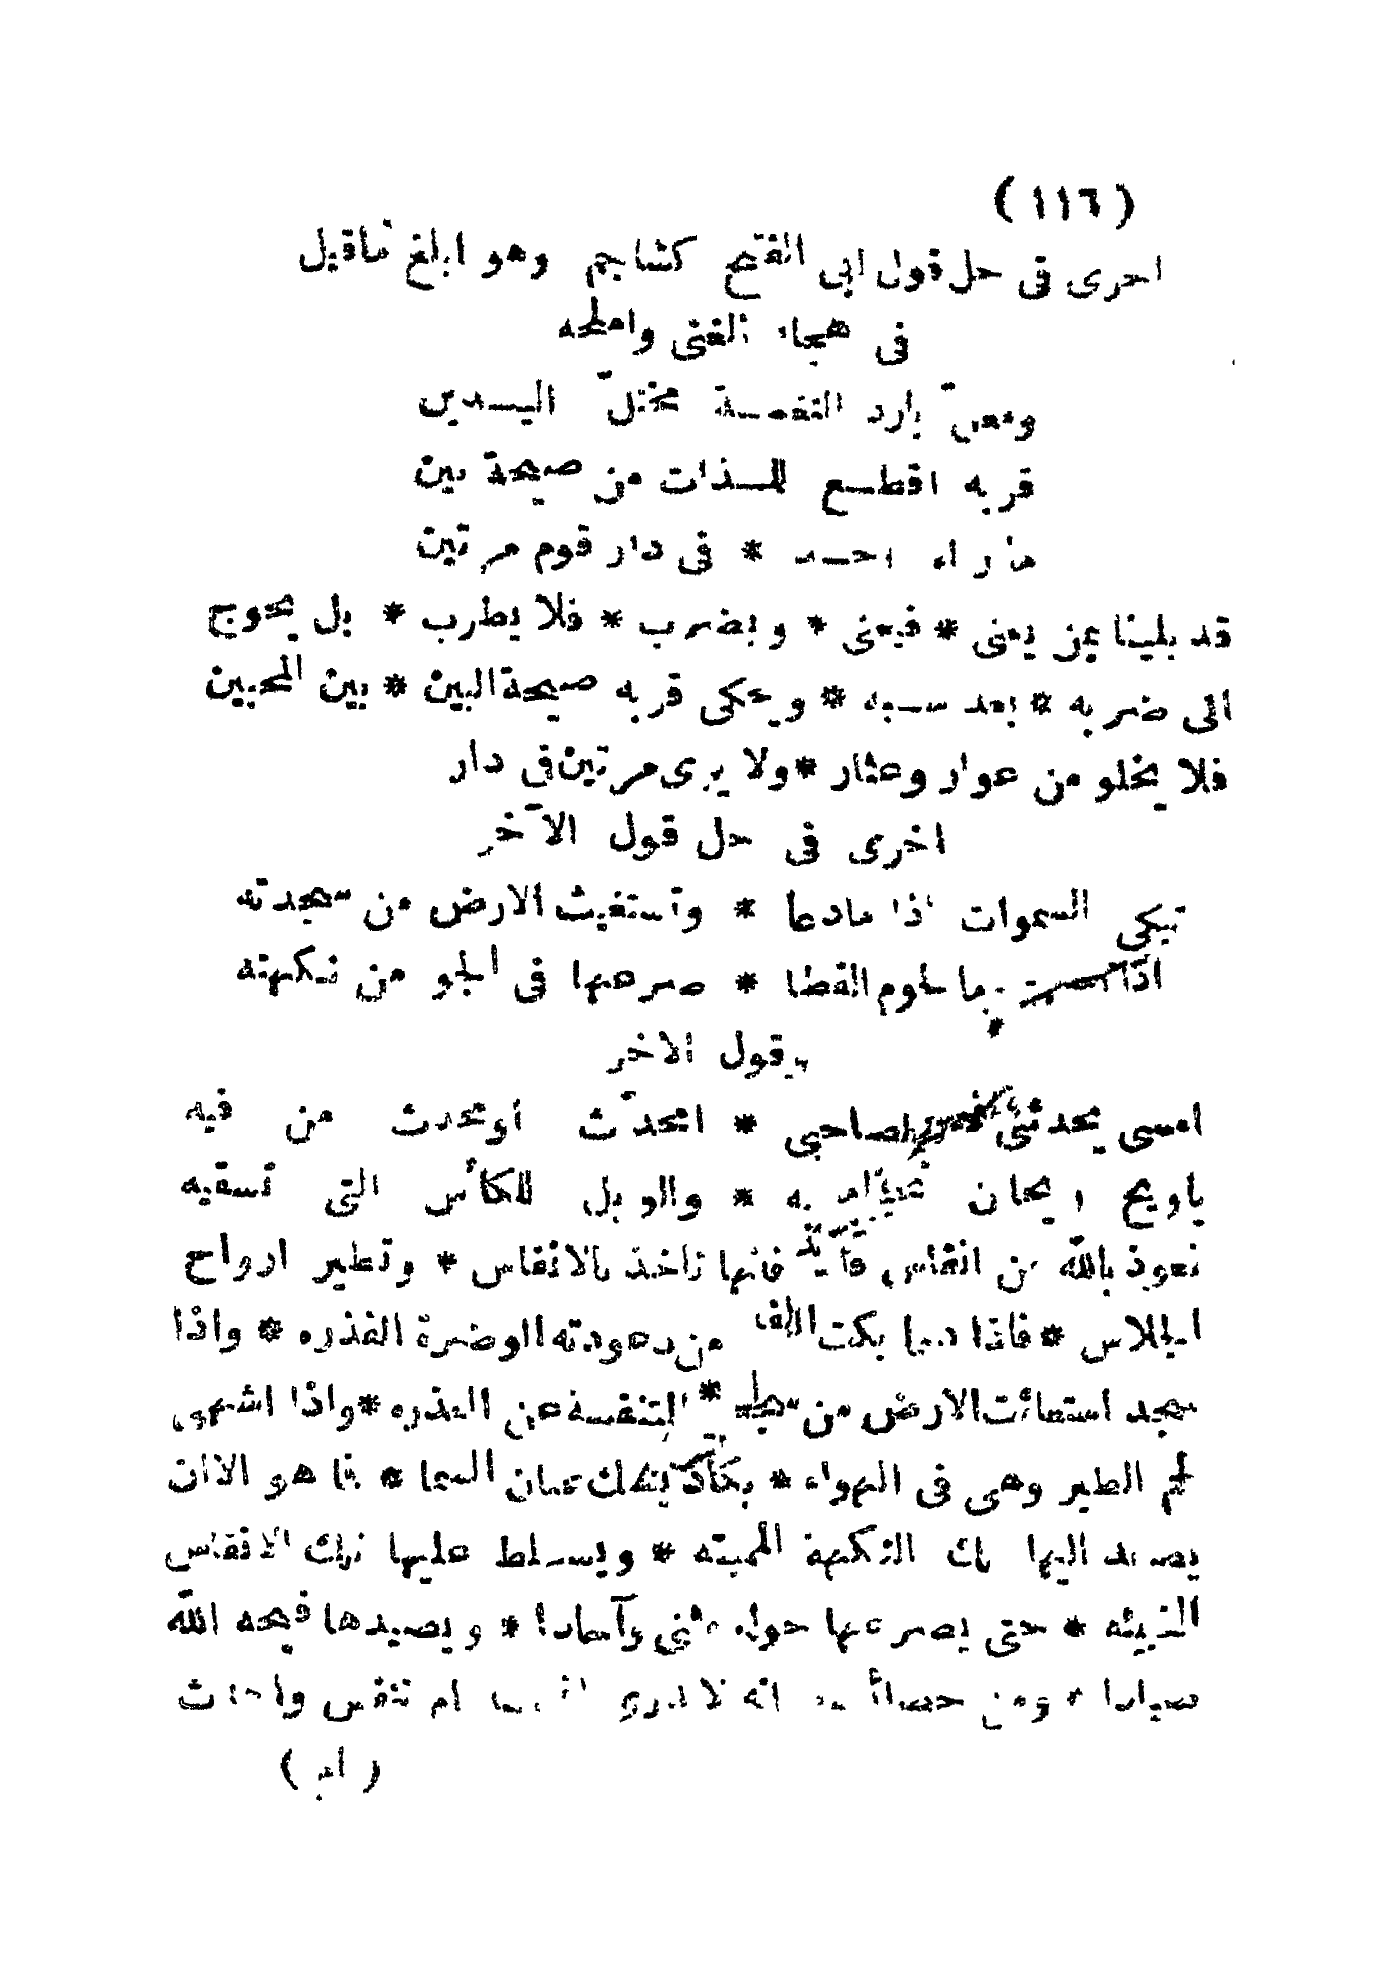 (١١٦)
اخرى فى حل قول ابى الفتح كشاجم وهو ابلغ ماقيل
فى هجاء المغنى واملحه
ومغنّ بارد النغمـــة مختلّ اليـــدين
قربه اقطـــع للـــذات من صيحة بين
ما راه احـــد * فى دار قوم مرتين
قد بلينا بمن يغنى * فيعنى * ويضرب * فلا يطرب * بل يحوج
الى ضربه * بعد ســبه * ويحكى قربه صيحة البين * بين المحبين
فلا يخلو من عوار وعثار * ولا يرى مرتين فى دار
اخرى فى حل قول الآخر
تبكى السموات اذا مادعا * وتستغيث الارض من سجدته
اذا اشتهى يوما لحوم القطا * صرعها فى الجو من نكهته
وقول الاخر
امسى يحدثنى فقلت لصاحبى * اتحدّث او محدث من فيه
ياويح ريحان به * والويل للكأس التى تسقيه
نعوذ بالله من انفاس فانها تاخذ بالانفاس * وتطير ارواح
الجلاس * فاذا دعا بكت من دعوته الوضرة القذره * واذا
سجد استغاثت الارض من * المتنفسة عن العذره * واذا اشتهى
لحم الطير وهى فى الهواء * عنان السما * فما هو الاان
يصعد اليها تلك النكهة الميته * ويســلط عليها تلك الانفاس
الخبيثه * حتى يصرعها حوله مثنى وآحادا * ويصيدها قبحه الله
صيادا * ومن انه لا ندرى ام تنفس واحدث